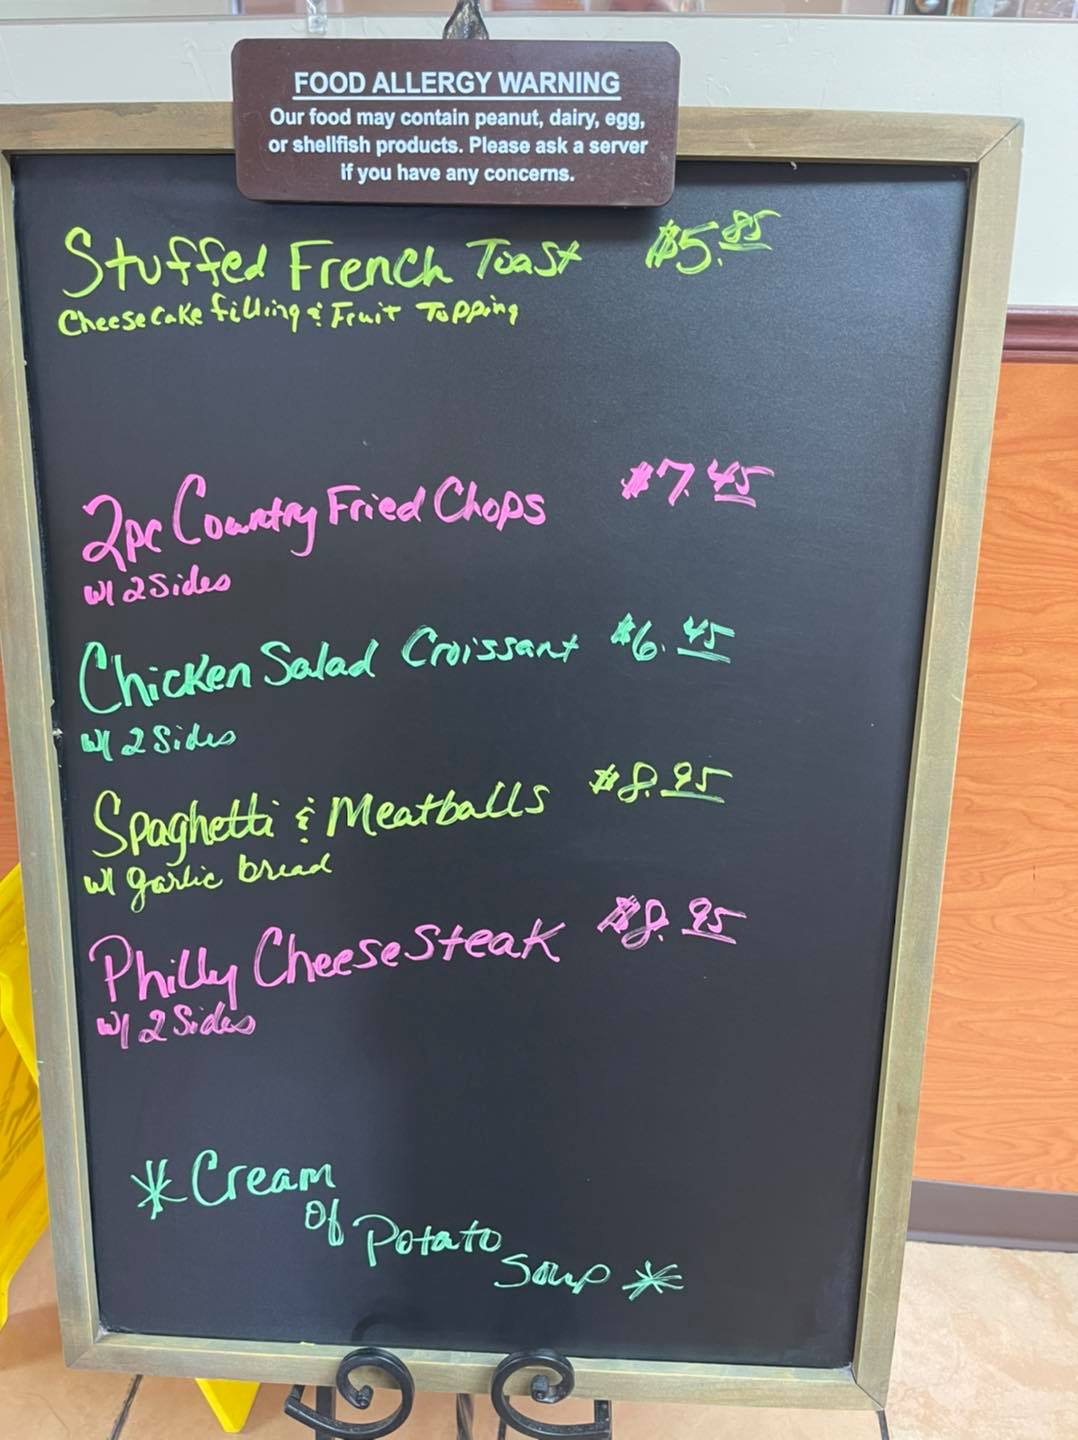 FOOD ALLERGY WARNING
Our food may contain peanut, dairy, egg,
or shellfish products. Please ask a server
if you have any concerns.
Stuffed French Toast $5.85
Cheesecake filling & Fruit Topping
2pc Country Fried Chops $7.45
w/ 2 Sides
Chicken Salad Croissant $6.45
w/ 2 Sides
Spaghetti & Meatballs $8.95
w/ garlic bread
Philly Cheese Steak $8.95
w/ 2 Sides
* Cream
of
Potato
Soup *